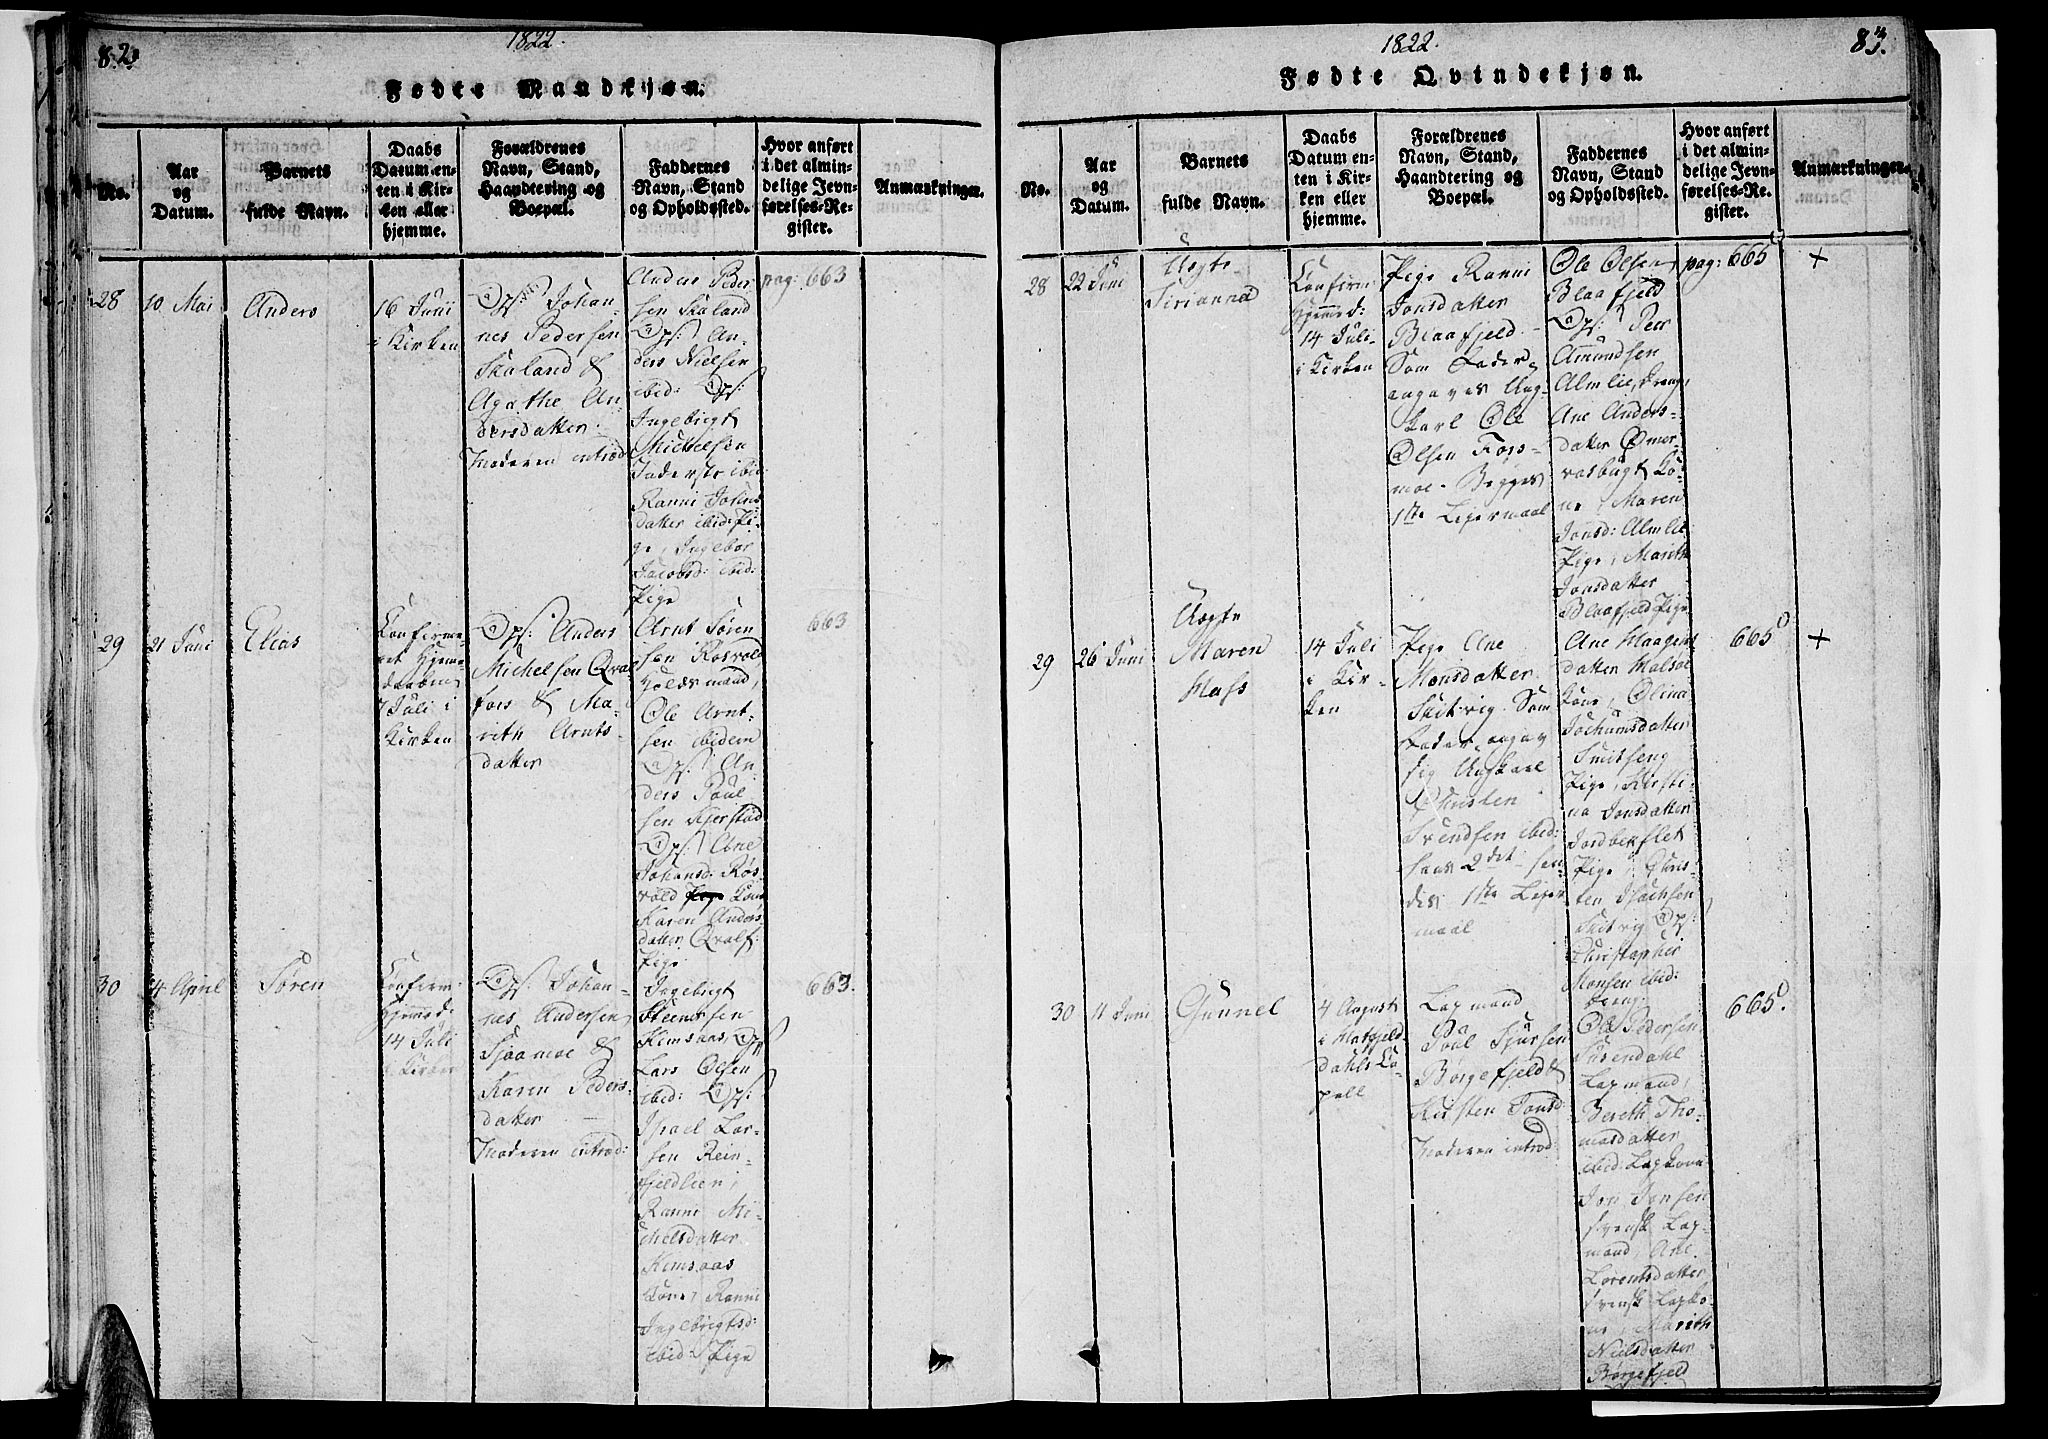 82.
1822.
Fødte Mandkjøn.
No.
Aar
og
Datum.
Barnets
fulde Navn.
Daabs
Datum en-
ten i Kir-
ken eller
hjemme.
Forældrenes
Navn, Stand,
Haandtering og
Boepæl.
Faddernes
Navn, Stand
og Opholdssted.
Hvor anført
i det almin-
delige Jevn-
førelses-Re-
gister.
Anmærkninger.
28
10 Mai
Anders
16 Juni
i Kirken
Ops: Johan-
nes Pedersen
Skaland &
Agathe An-
dersdatter
Moderen introd:
Anders Peder-
sen Skaland
Ops: An-
ders Nielsen
ibid: Ops:
Ingebrigt
Michelsen
ibid:
Ranni Johns-
datter ibid: Pi-
ge, Ingebor
Jacobsd: ibid:
Pige
pag: 663
29
21 Juni
Elias
Confirme-
ret Hjemme-
daaben
7 Juli i
Kirken
Ops: Anders
Michelsen Qval-
fors & Ma-
rith Arnts-
datter
Arnt Søren-
sen Rosvold
Ole Arnt-
sen ibidem
Ops: An-
ders Poul-
sen Kjerstad
Ops: Ane
Johansd: Ros-
vold Pige Kone
Karen Anders-
datter Qvalf:
Pige
663
30
4 April
Søren
Confirm:
Hjemmed:
14 Juli
i Kirken
Ops: Johan-
nes Andersen
Sjaamoe &
Karen Peders-
datter
Moderen introd:
Ingebrigt
Steensen
Kimsaas, Ops:
Lars Olsen
ibid: Ops:
Israel Lar-
sen Rein-
fjeldlien,
Ranni Mi-
chelsdatter
Kimsaas
Kone, Ranni
Ingebrigtsd:
ibid: Pige
663.
83.
1822.
Fødte Qvindekjøn.
No.
Aar
og
Datum.
Barnets
fulde Navn.
Daabs
Datum en-
ten i Kir-
ken eller
hjemme.
Forældrenes
Navn, Stand,
Haandtering og
Boepæl.
Faddernes
Navn, Stand
og Opholdssted.
Hvor anført
i det almin-
delige Jevn-
førelses-Re-
gister.
Anmærkninger.
28
22 Juni
Uægte
Sirianna
Confirm
Hjemmed:
14 Juli
i Kirken
Pige Ranni
Jonsdatter
Blaafjeld
Som Fader
angaves Ung-
karl Ole
Olsen Fors-
moe. Begges
1ste Leiermaal
Ole Olsen
Blaafjeld
Ops: Peer
Amundsen
Almlie, dreng,
Ane Anders-
datter Ømer-
vasbugt Ko-
ne, Maren
Jonsd: Almlie
Pige, Marith
Jonsdatter
Blaafjeld Pige
pag: 665
+
29
26 Juni
Uægte
Maren
Hass
14 Juli
i Kir-
ken
Pige Ane
Monsdatter
Skitvig. Som
Fader angav
sig Ungkarl
Christen
Svendsen ibid:
hans 2det hen-
des 1ste Leier-
maal
Ane Haagens-
datter Halsøe
Kone, Olina
Jochumsdatter
Smitseng
Pige, Kirsti-
na Jonsdatter
Jordbekslet
Pige, Chris-
ten Isachsen
Skitvig Ops:
Christopher
Monsen ibid:
dreng.
665
+
30
11 Juni
Gunnel
4 August
i Hatfjeld-
dahls Ca-
pell
Lapmand
Poul Sjursen
Børgefjeld &
Kirsten Jonsd:
Moderen introd:
Ole Pedersen
Susendahl
Lapmand,
Bereth Tho-
masdatter
ibid: Lapkone
Jon Jonsen
svensk Lap-
mand, Ane
Lorentsdatter
svensk Lapko-
ne, Marith
Nielsdatter
Børgefjeld
665.